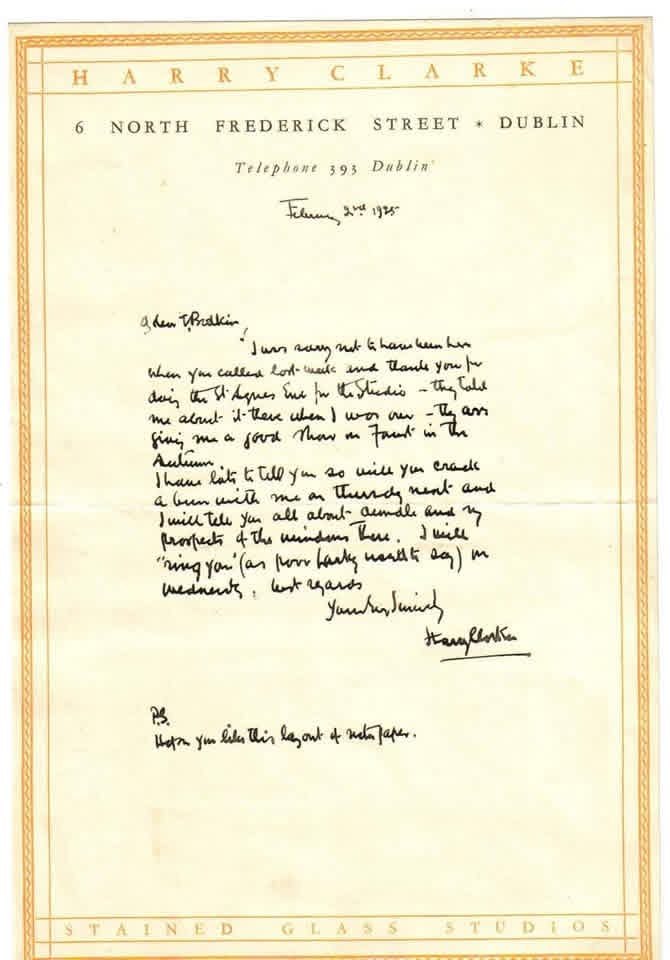 HARRY CLARKE
6 NORTH FREDERICK STREET * DUBLIN
Telephone 393 Dublin
February 2nd 1925
dear Bodkin,
I was sorry not to have been here
when you called last week and thank you for
doing the St Agnes Eve for the Studio – they told
me about it there when I was over – they are
giving me a good show on Faust in the
Autumn.
I have lots to tell you so will you crack
a bun with me on Thursday next and
I will tell you all about and my
prospects of the windows there. I will
"ring you" (as poor used to say) on
Wednesday, best regards
Yours Sincerely
Harry Clarke
P.S.
Hope you like this layout of note paper.
STAINED GLASS STUDIOS